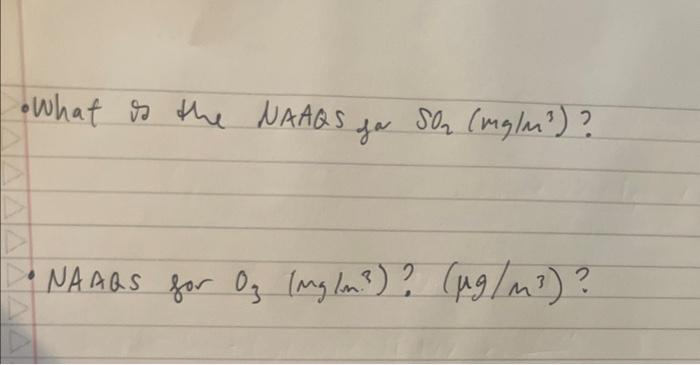 •What is the NAAQS for SO₂ (mg/m³)?
• NAAQS for O₃ (mg/m³)? (μg/m³)?